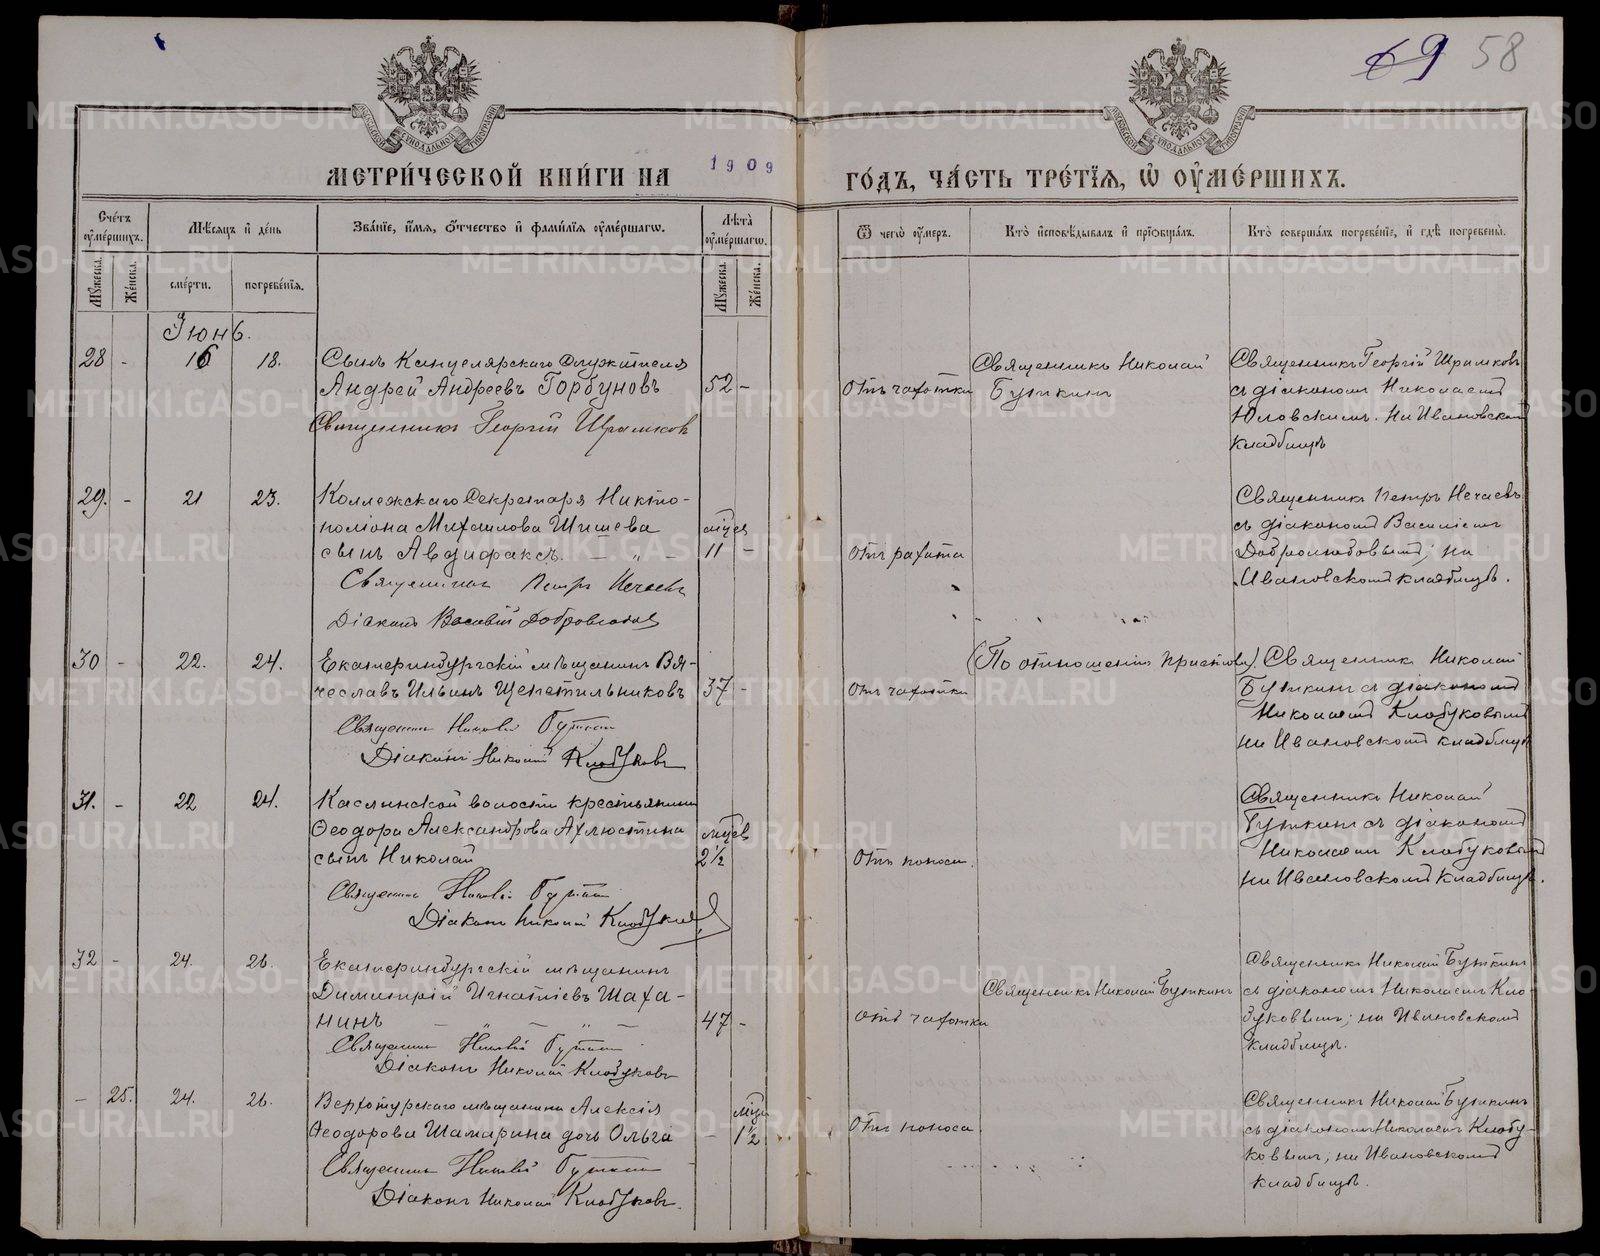 69 58
МЕТРИ́ЧЕСКОЙ КНИ́ГИ НА 1909 ГО́ДЪ, ЧА́СТЬ ТРЕ́ТІѦ, Ѡ ОУМЕ́РШИХЪ.
Сче́тъ оуме́ршихъ.
Мѣ́сяцъ и де́нь
Зва́ніе, и́мя, о́тчество и фами́лія оуме́ршагѡ.
Лѣта̀ оуме́ршагѡ.
Ѿ чегѡ̀ оу́меръ.
Кто̀ исповѣ́дывалъ и пріѡбща́лъ.
Кто̀ соверша́лъ погребе́ніе, и гдѣ̀ погребены̀.
Му́жеска.
Же́нска.
сме́рти.
погребе́нія.
Му́жеска.
Же́нска.
Іюнь.
28 - 16 18.
Сынъ Канцелярскаго Служителя
Андрей Андреевъ Горбуновъ 52 -
Священникъ Георгій Шрамковъ
Отъ чахотки
Священникъ Николай
Буткинъ
Священникъ Георгій Шрамковъ
съ діакономъ Николаемъ
Юловскимъ. на Ивановскомъ
кладбищѣ
29. - 21 23.
Коллежскаго Секретаря Никто-
поліона Михаилова Шишева
сынъ Авдифаксъ. мѣсяц 11 -
Священникъ Петръ Нечаевъ
Діаконъ Василій Добролюбовъ
Отъ рахита
Священникъ Петръ Нечаевъ
съ діакономъ Василіемъ
Добролюбовымъ; на
Ивановскомъ кладбищѣ.
30 - 22. 24.
Екатеринбургскій мѣщанинъ Вя-
чеславъ Ильинъ Щепетильниковъ 37 -
Священник Николай Буткин
Діаконъ Николай Клобуковъ
Отъ чахотки
(По отношенію пристава).
Священникъ Николай
Буткинъ съ діакономъ
Николаемъ Клобуковымъ
на Ивановскомъ кладбищѣ
31. - 22 24.
Каслинской волости крестьянина
Ѳеодора Александрова Ахлюстина
сынъ Николай мѣсяцев 2½
Священник Николай Буткин
Діаконъ Николай Клобуковъ
Отъ поноса.
Священникъ Николай
Буткинъ съ діакономъ
Николаемъ Клобуковымъ
на Ивановскомъ кладбищѣ.
32 - 24. 26.
Екатеринбургскій мѣщанинъ
Димитрій Игнатіевъ Шаха-
нинъ 47 -
Священник Николай Буткин
Діаконъ Николай Клобуковъ
Отъ чахотки
Священникъ Николай Буткинъ
Священникъ Николай Буткинъ
съ діакономъ Николаемъ Кло-
буковымъ; на Ивановскомъ
кладбищѣ.
- 25. 24. 26.
Верхотурскаго мѣщанина Алексія
Ѳеодорова Шамарина дочь Ольга - 1½
Священник Николай Буткин
Діаконъ Николай Клобуковъ.
Отъ поноса
Священникъ Николай Буткинъ
съ діакономъ Николаемъ Клобу-
ковымъ; на Ивановскомъ
кладбищѣ.
METRIKI.GASO-URAL.RU